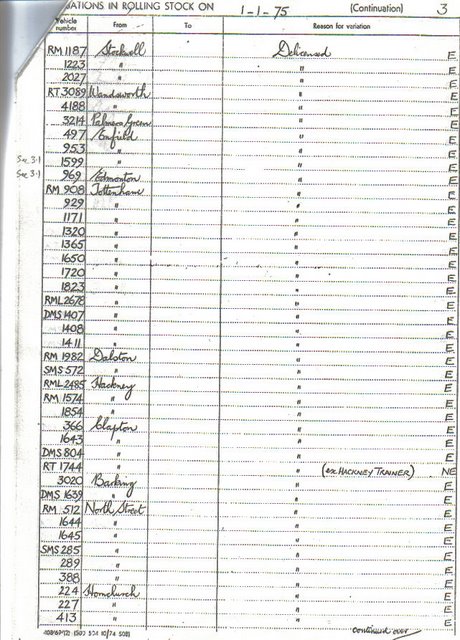 ATIONS IN ROLLING STOCK ON 1-1-75 (Continuation) 3
Vehicle number From To Reason for variation
RM 1187 Stockwell Delicensed E
1223 " " E
2027 " " E
RT 3089 Wandsworth " E
4188 " " E
3214 Palmers Green " E
497 Enfield " E
953 " " E
See 3.1 1599 " " E
See 3.1 969 Edmonton " E
RM 908 Tottenham " E
929 " " E
1171 " " E
1320 " " E
1365 " " E
1650 " " E
1720 " " E
1823 " " E
RML 2678 " " E
DMS 1407 " " E
1408 " " E
1411 " " E
RM 1982 Dalston " E
SMS 572 " " E
RML 2485 Hackney " E
RM 1574 " " E
1854 " " E
366 Clapton " E
1643 " " E
DMS 804 " " E
RT 1744 " " (ex HACKNEY TRAINER) NE
3020 Barking " E
DMS 1639 " " E
RM 512 North Street " E
1644 " " E
1645 " " E
SMS 285 " " E
289 " " E
388 " " E
224 Hornchurch " E
227 " " E
413 " " E
continued over